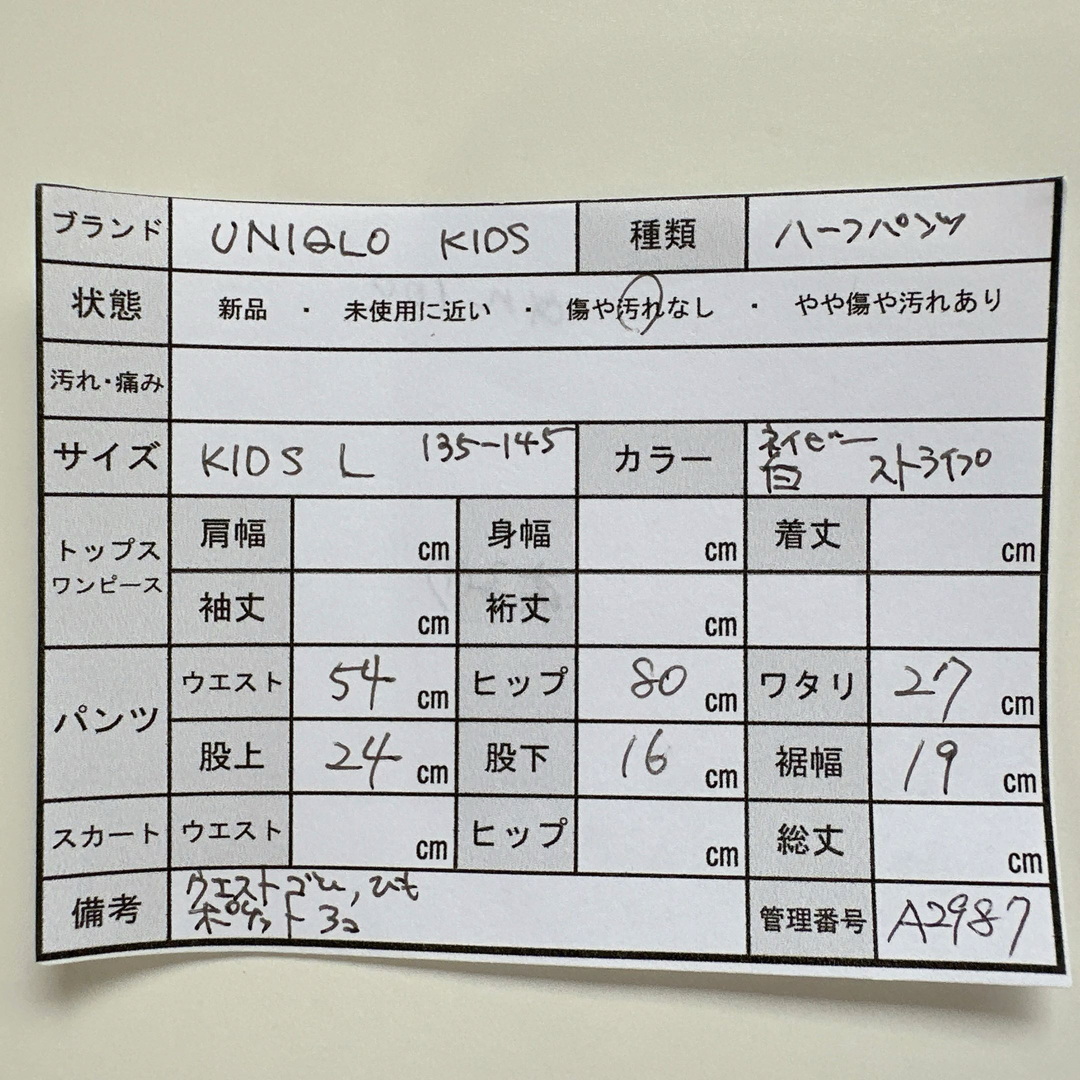 ブランド UNIQLO KIDS 種類 ハーフパンツ
状態 新品 ・ 未使用に近い ・ 傷や汚れなし ・ やや傷や汚れあり
汚れ・痛み
サイズ KIDS L 135-145 カラー ネイビー 白 ストライプ
トップス ワンピース 肩幅 cm 身幅 cm 着丈 cm
袖丈 cm 裄丈 cm
パンツ ウエスト 54 cm ヒップ 80 cm ワタリ 27 cm
股上 24 cm 股下 16 cm 裾幅 19 cm
スカート ウエスト cm ヒップ cm 総丈 cm
備考 ウエストゴム,ひも
ポケット 3コ 管理番号 A2987